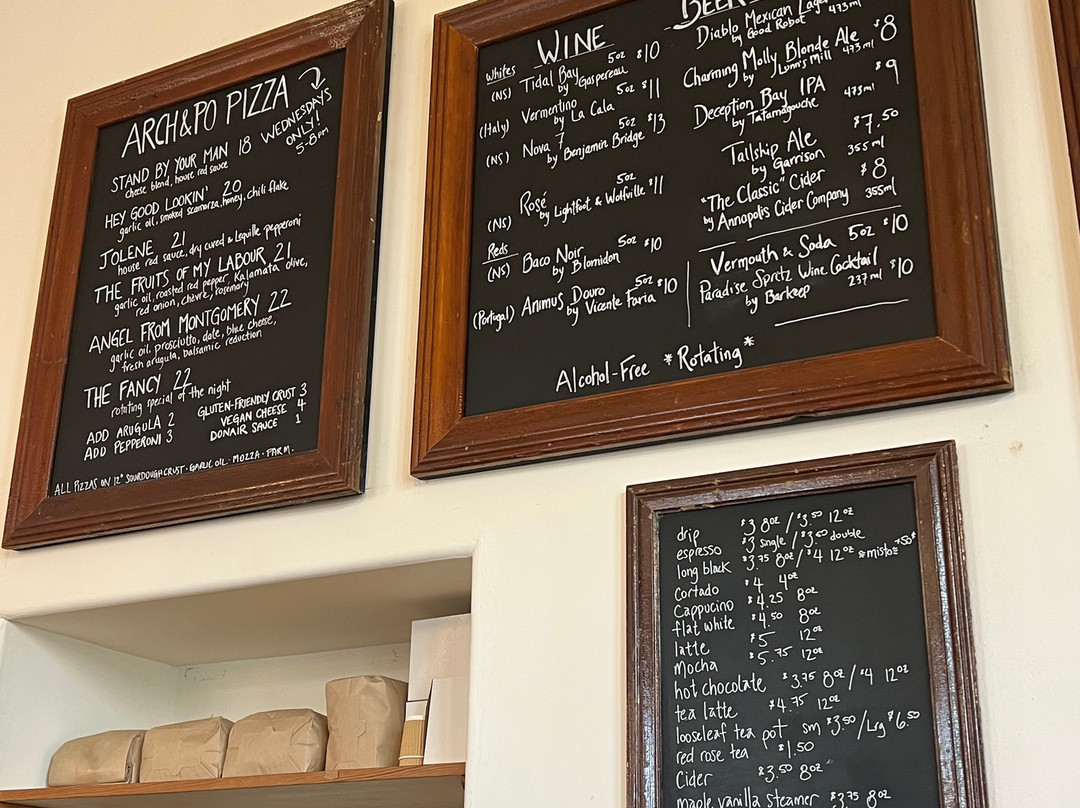 ARCH&PO PIZZA
WEDNESDAYS
ONLY!
5-8pm
STAND BY YOUR MAN 18
cheese blend, house red sauce
HEY GOOD LOOKIN' 20
garlic oil, smoked scamorza, honey, chili flake
JOLENE 21
house red sauce, dry cured & Lequille pepperoni
THE FRUITS OF MY LABOUR 21
garlic oil, roasted red pepper, Kalamata olive,
red onion, chèvre, rosemary
ANGEL FROM MONTGOMERY 22
garlic oil, prosciutto, date, blue cheese,
fresh arugula, balsamic reduction
THE FANCY 22
rotating special of the night
ADD ARUGULA 2
ADD PEPPERONI 3
GLUTEN-FRIENDLY CRUST 3
VEGAN CHEESE 4
DONAIR SAUCE 1
ALL PIZZAS ON 12" SOURDOUGH CRUST · GARLIC OIL · MOZZA · PARM.
WINE
Whites
(NS) Tidal Bay 5oz $10
by Gaspereau
(Italy) Vermentino 5oz $11
by La Cala
(NS) Nova 7 5oz $13
by Benjamin Bridge
(NS) Rosé 5oz $11
by Lightfoot & Wolfville
Reds
(NS) Baco Noir 5oz $10
by Blomidon
(Portugal) Animus Douro 5oz $10
by Vicente Faria
Diablo Mexican Lager 473ml
by Good Robot
Charming Molly Blonde Ale $8
by Lunn's Mill 473ml
Deception Bay IPA $9
by Tatamagouche 473ml
Tallship Ale $7.50
by Garrison 355ml
"The Classic" Cider $8
by Annapolis Cider Company 355ml
Vermouth & Soda 5oz $10
Paradise Spritz Wine Cocktail $10
by Barkeep 237ml
Alcohol-Free *Rotating*
drip $3 8oz / $3.50 12oz
espresso $3 single / $3.60 double
long black $3.75 8oz / $4 12oz *misto +50¢
Cortado $4 4oz
Cappucino $4.25 8oz
flat white $4.50 8oz
latte $5 12oz
mocha $5.75 12oz
hot chocolate $3.75 8oz / $4 12oz
tea latte $4.75 12oz
looseleaf tea pot sm $3.50 / Lrg $6.50
red rose tea $1.50
Cider $3.50 8oz
maple vanilla steamer $3.75 8oz